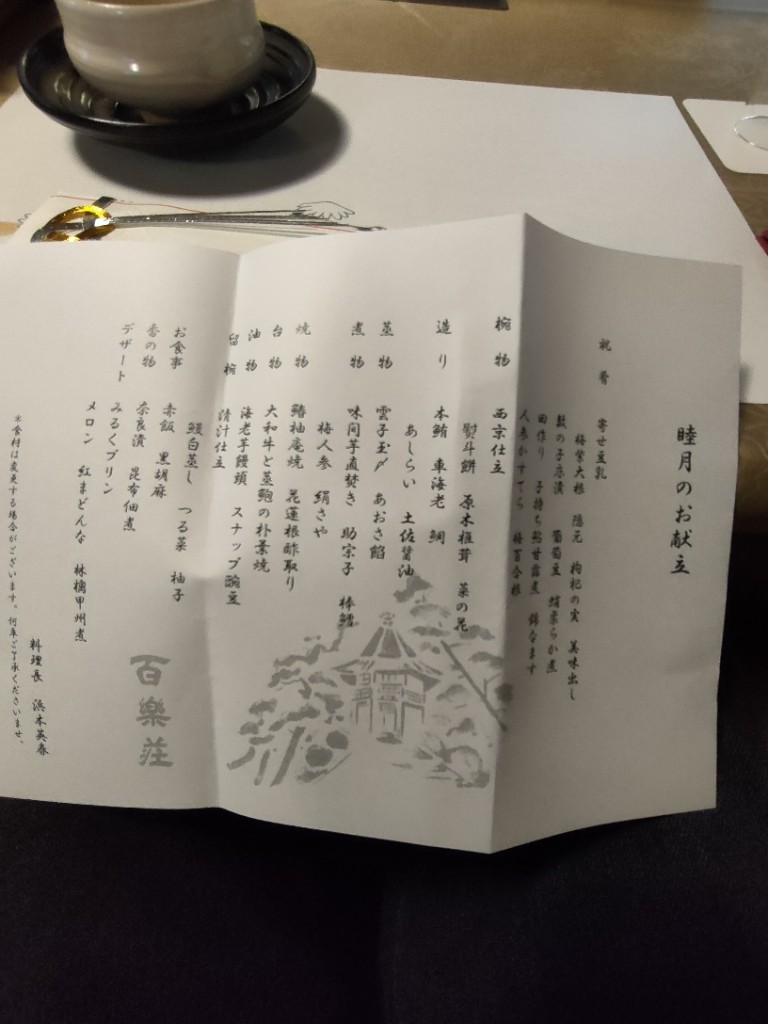 睦月のお献立
祝肴 寄せ豆乳
梅紫大根 隠元 枸杞の実 美味出し
数の子床漬 葡萄豆 蛸柔らか煮
田作り 子持ち鮎甘露煮 錦なます
人参かすてら 梅百合根
椀物 西京仕立
熨斗餅 原木椎茸 菜の花
造り 本鮪 車海老 鯛
あしらい 土佐醤油
蒸物 雲子玉〆 あおさ餡
煮物 味間芋直焚き 助宗子 棒鱈
梅人参 絹さや
焼物 鰆柚庵焼 花蓮根酢取り
台物 大和牛と蒸鮑の朴葉焼
油物 海老芋饅頭 スナップ豌豆
留椀 清汁仕立
鰻白蒸し つる菜 柚子
お食事 赤飯 黒胡麻
香の物 奈良漬 昆布佃煮
デザート みるくプリン
メロン 紅まどんな 林檎甲州煮
料理長 浜本英春
※食材は変更する場合がございます。何卒ご了承くださいませ。
百樂荘